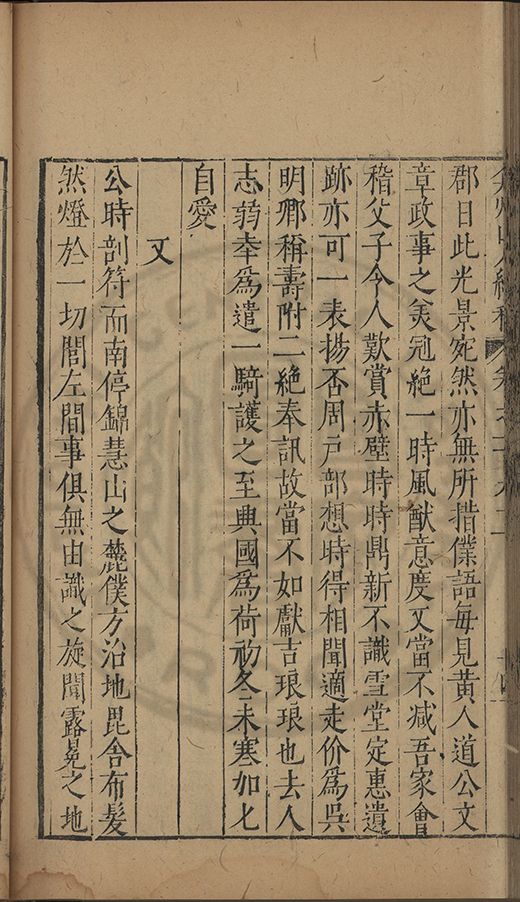 弇州山人續稿
郡日此光景宛然亦無所措僕語每見黃人道公文
章政事之美冠絕一時風猷意度又當不减吾家會
稽父子令人歎賞赤壁時時鼎新不識雪堂定惠遺
跡亦可一表揚否周戶部想時得相聞適走价爲吳
明卿稱壽附二絕奉訊故當不如獻吉琅琅也去人
志弱幸爲遣一騎護之至興國爲荷初冬未寒加匕
自愛
又
公時剖符而南停錦慧山之麓僕方治地毘舍布髮
然燈於一切閭左間事俱無由識之旋聞露冕之地